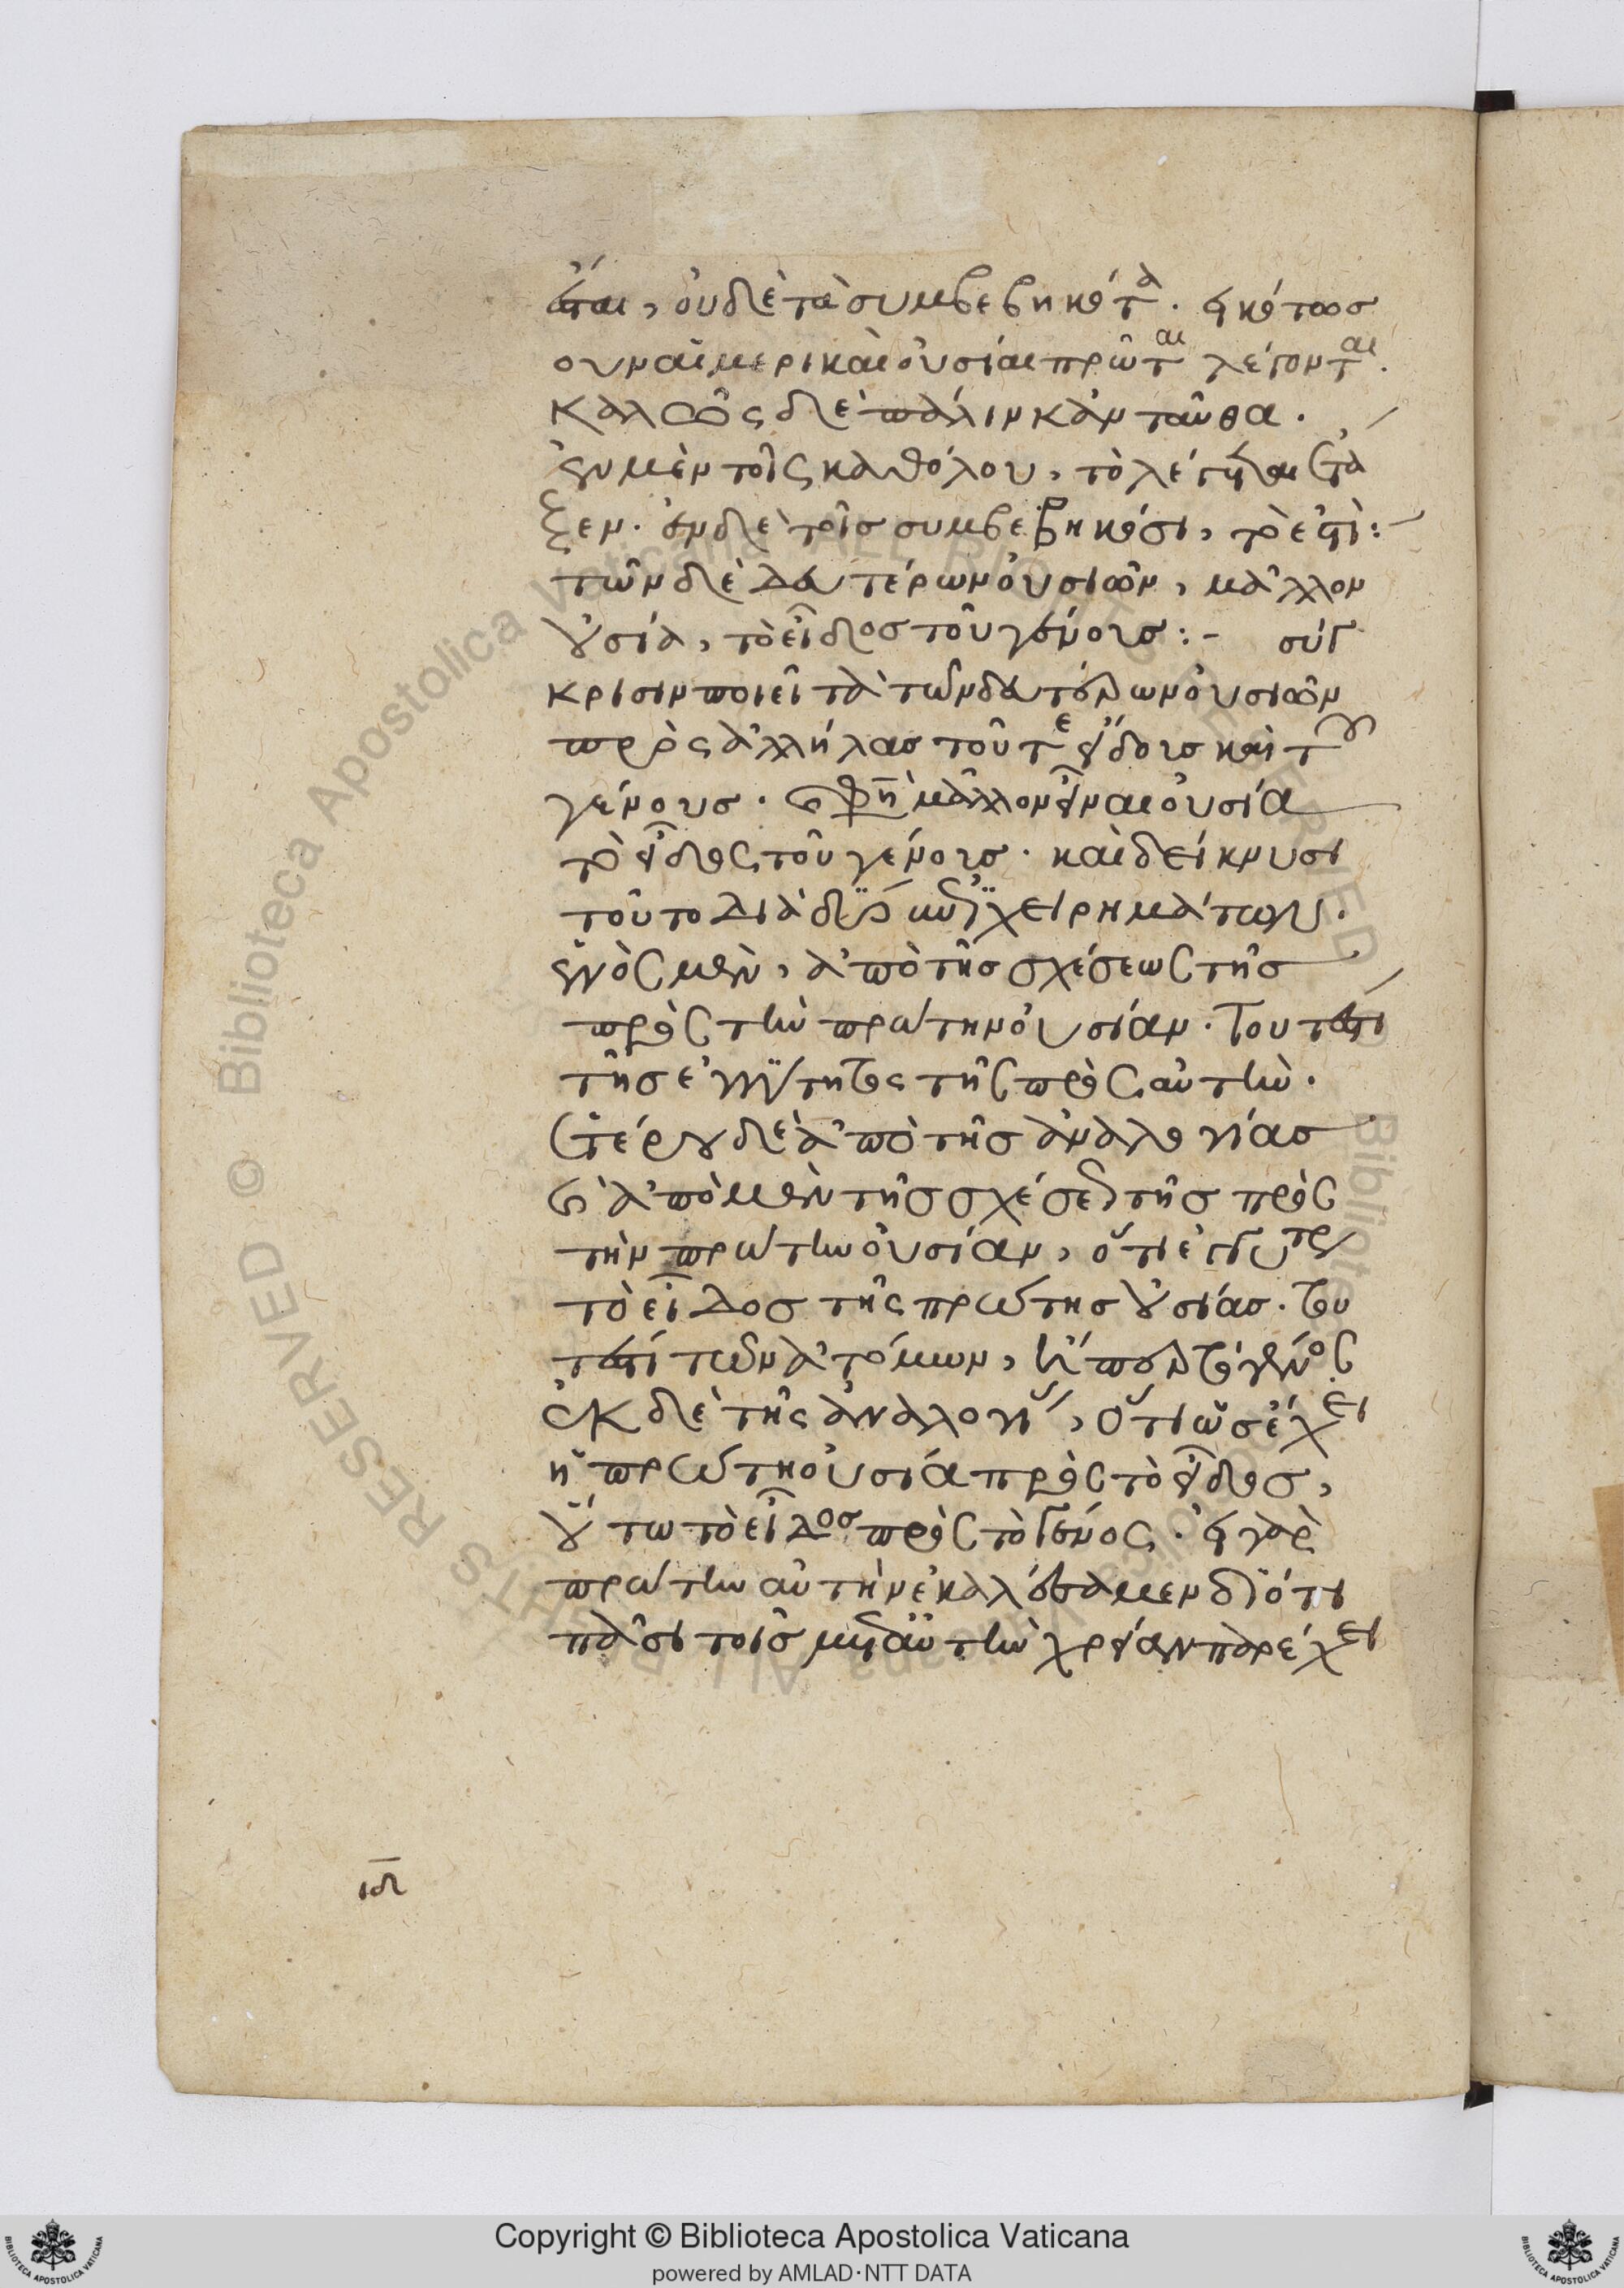 ἔσται, οὐδὲ τὰ συμβεβηκότα. εἰκότως
οὖν αἱ μερικαὶ οὐσίαι πρῶται λέγονται.
καλῶς δὲ πάλιν κἀνταῦθα.
ἐν μὲν τοῖς καθόλου, τὸ λέγεσθαι ἔτα
ξεν. ἐν δὲ τοῖς συμβεβηκόσι, τὸ ἐστί:
τῶν δὲ δευτέρων οὐσιῶν, μᾶλλον
οὐσία, τὸ εἶδος τοῦ γένους:- σύγ
κρισιν ποιεῖται τῶν δευτέρων οὐσιῶν
πρὸς ἀλλήλας τοῦ τε εἴδους καὶ τοῦ
γένους. καὶ φησὶ μᾶλλον εἶναι οὐσία
τὸ εἶδος τοῦ γένους. καὶ δείκνυσι
τοῦτο διὰ δύο ἐπιχειρημάτων.
ἑνὸς μὲν, ἀπὸ τῆς σχέσεως τῆς
πρὸς τὴν πρώτην οὐσίαν. τουτέστι
τῆς ἐγγύτητος τῆς πρὸς αὐτήν.
ἑτέρου δὲ ἀπὸ τῆς ἀναλογίας
καὶ ἀπὸ μὲν τῆς σχέσεως τῆς πρὸς
τὴν πρώτην οὐσίαν, ὅτι ἐγγυτέρω
τὸ εἶδος τῆς πρώτης οὐσίας. του
τέστι τῶν ἀτόμων, ἤπερ τὸ γένος
ἐκ δὲ τῆς ἀναλογίας, ὅτι ὡς ἔχει
ἡ πρώτη οὐσία πρὸς τὸ εἶδος,
οὕτω τὸ εἶδος πρὸς τὸ γένος. εἰ γὰρ
πρώτην αὐτὴν ἐκαλέσαμεν διότι
πᾶσι τοῖς μετ' αὐτὴν χρείαν παρέχει
ιδ
Copyright © Biblioteca Apostolica Vaticana
powered by AMLAD·NTT DATA